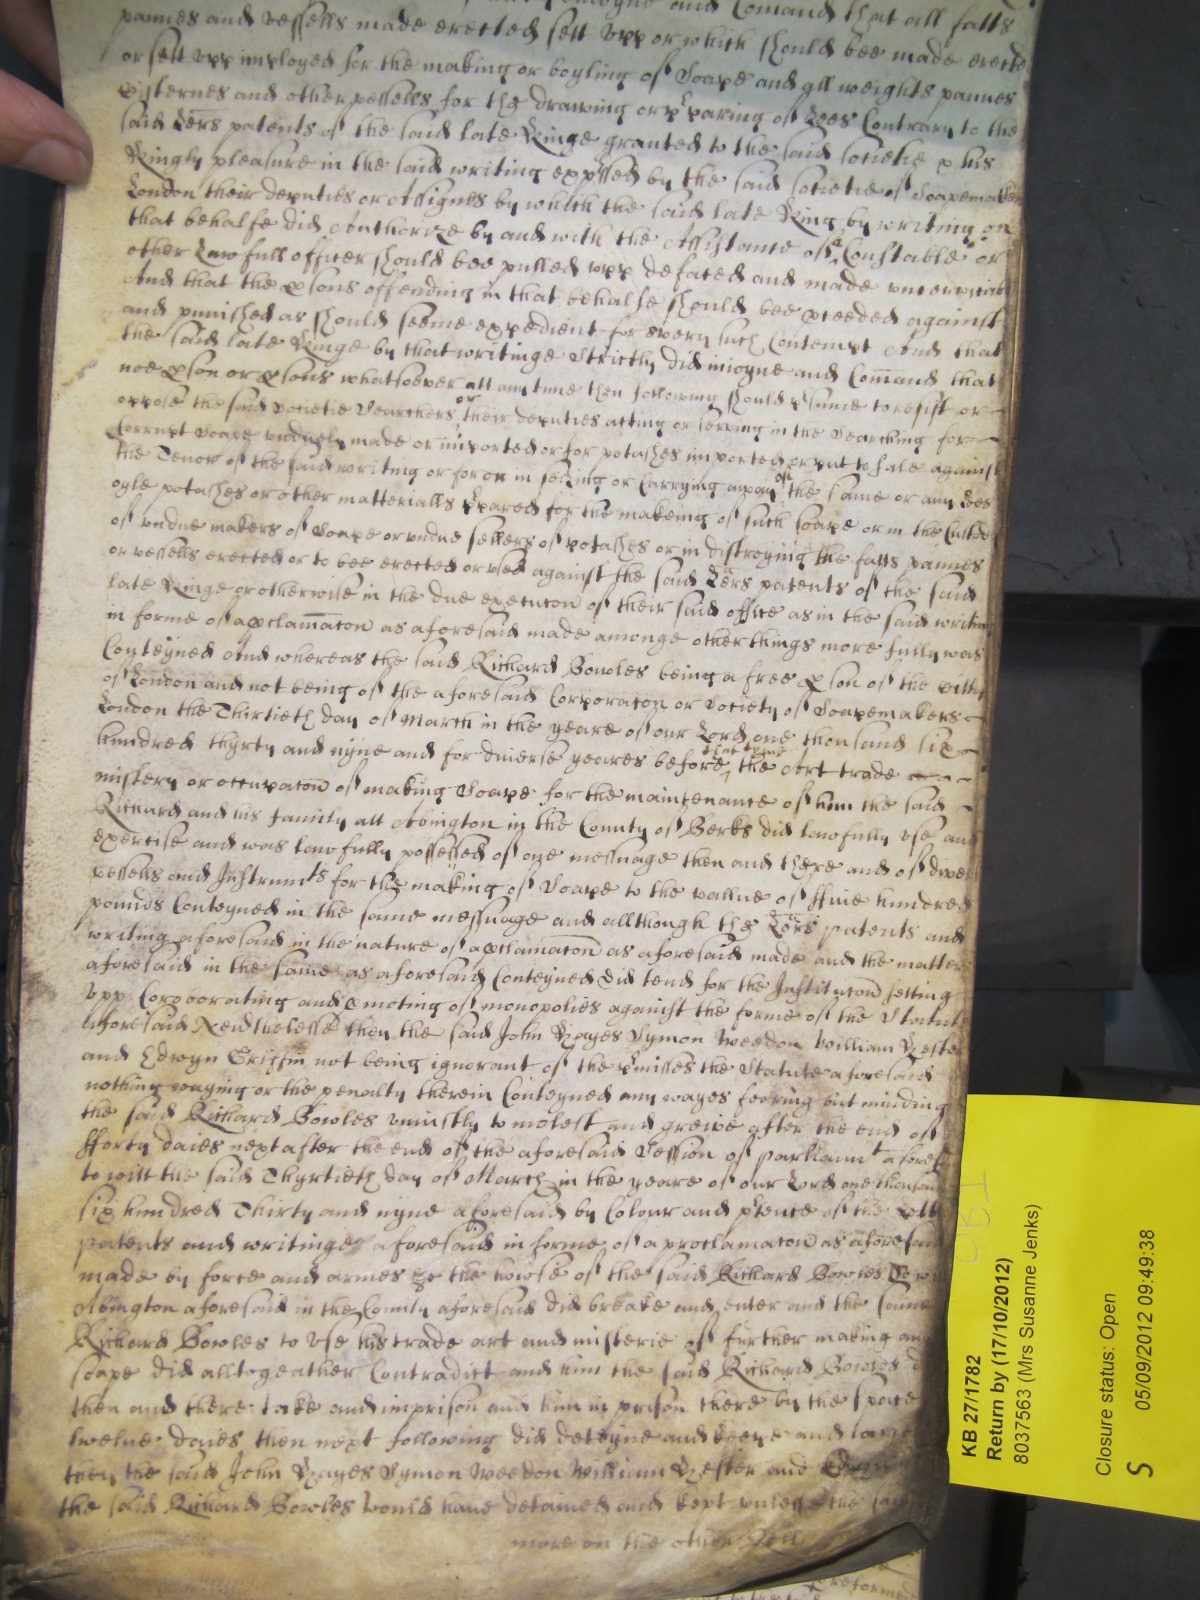 and Comand that all fatts
pannes and vessells made erected sett vpp or which should bee made erected
or sett vpp imployed for the making or boyling of Soape and all weights pannes
Cisternes and other vessells for the drawing or pparing of Lees Contrary to the
said Lres patents of the said late Kinge granted to the said Societie & his
Kingly pleasure in the said writing expssed by the said Societie of Soapemakers
London their deputies or Assignes by which the said late King by writing on
that behalfe did Authorize by and with the Assistance of a Constable or
other Lawfull officer should bee pulled vpp defaced and made
And that the psons offending in that behalfe should bee pceeded against
and punished as should seeme expedient for every such Contempt And that
the said late Kinge by that writinge Strictly did inioyne and Comand that
noe pson or psons whatsoever att any time then following should psume to resist or
oppose the said Societie Searchers or their deputies acting or serving in the Searching for
Corrupt Soape vnduely made or imported or for potashes imported or put to sale against
the Tenor of the said writing or for or in seizing or Carrying away of the same or any Lees
oyle potashes or other matterialls ppared for the makeing of such soape or in the
of vndue makers of Soape or vndue sellers of potashes or in distroying the fatts pannes
or vessells erected or to bee erected or vsed against the said Lres patents of the said
late Kinge or otherwise in the due execucon of their said office as in the said writing
in forme of a pclamacon as aforesaid made amonge other things more fully was
Conteyned And whereas the said Richard Bowles being a free pson of the Citty
of London and not being of the aforesaid Corporacon or Society of Soapemakers
London the Thirtieth day of March in the yeare of our Lord one thousand six
hundred thyrty and nyne and for diverse yeares before that tyme the art trade
mistery or occupacon of making Soape for the maintenance of him the said
Richard and his family att Abington in the County of Berks did lawfully vse and
exercise and was lawfully possessed of one messuage then and there and of
vessells and Instrumts for the making of Soape to the vallue of ffive hundred
pounds Conteyned in the same messuage and allthough the Lres patents and
writing aforesaid in the nature of a pclamacon as aforesaid made and the matters
aforesaid in the same as aforesaid Conteyned did tend for the Institucon setting
vpp Corroborating and pmoting of monopolies against the forme of the Statute
aforesaid Nevthelesse then the said John Hayes Symon Weedon William
and Edwyn Griffin not being ignorant of the pmisses the Statute aforesaid
nothing waying or the penalty therein Conteyned any wayes fearing but minding
the said Richard Bowles vniustly to molest and greive after the end of
fforty daies next after the end of the aforesaid Session of Parliamt
to witt the said Thyrtieth day of March in the yeare of our Lord one thousand
six hundred Thirty and nyne aforesaid by Colour and ptence of the
patents and writinge aforesaid in forme of a proclamacon as aforesaid
made by force and armes &c the howse of the said Richard Bowles
Abington aforesaid in the County aforesaid did breake and enter and the same
Richard Bowles to vse his trade art and misterie of further making any
soape did alltogeather Contradict and him the said Richard Bowles
then and there take and imprison and him in prison there by the space
twelve daies then next following did deteyne and keepe and longer
they the said John Hayes Symon Weedon William and
the said Richard Bowles would have detained and kept vnlesse the
more on the other Roll
KB 27/1782
Return by (17/10/2012)
8037563 (Mrs Susanne Jenks)
Closure status: Open
S 05/09/2012 09:49:38